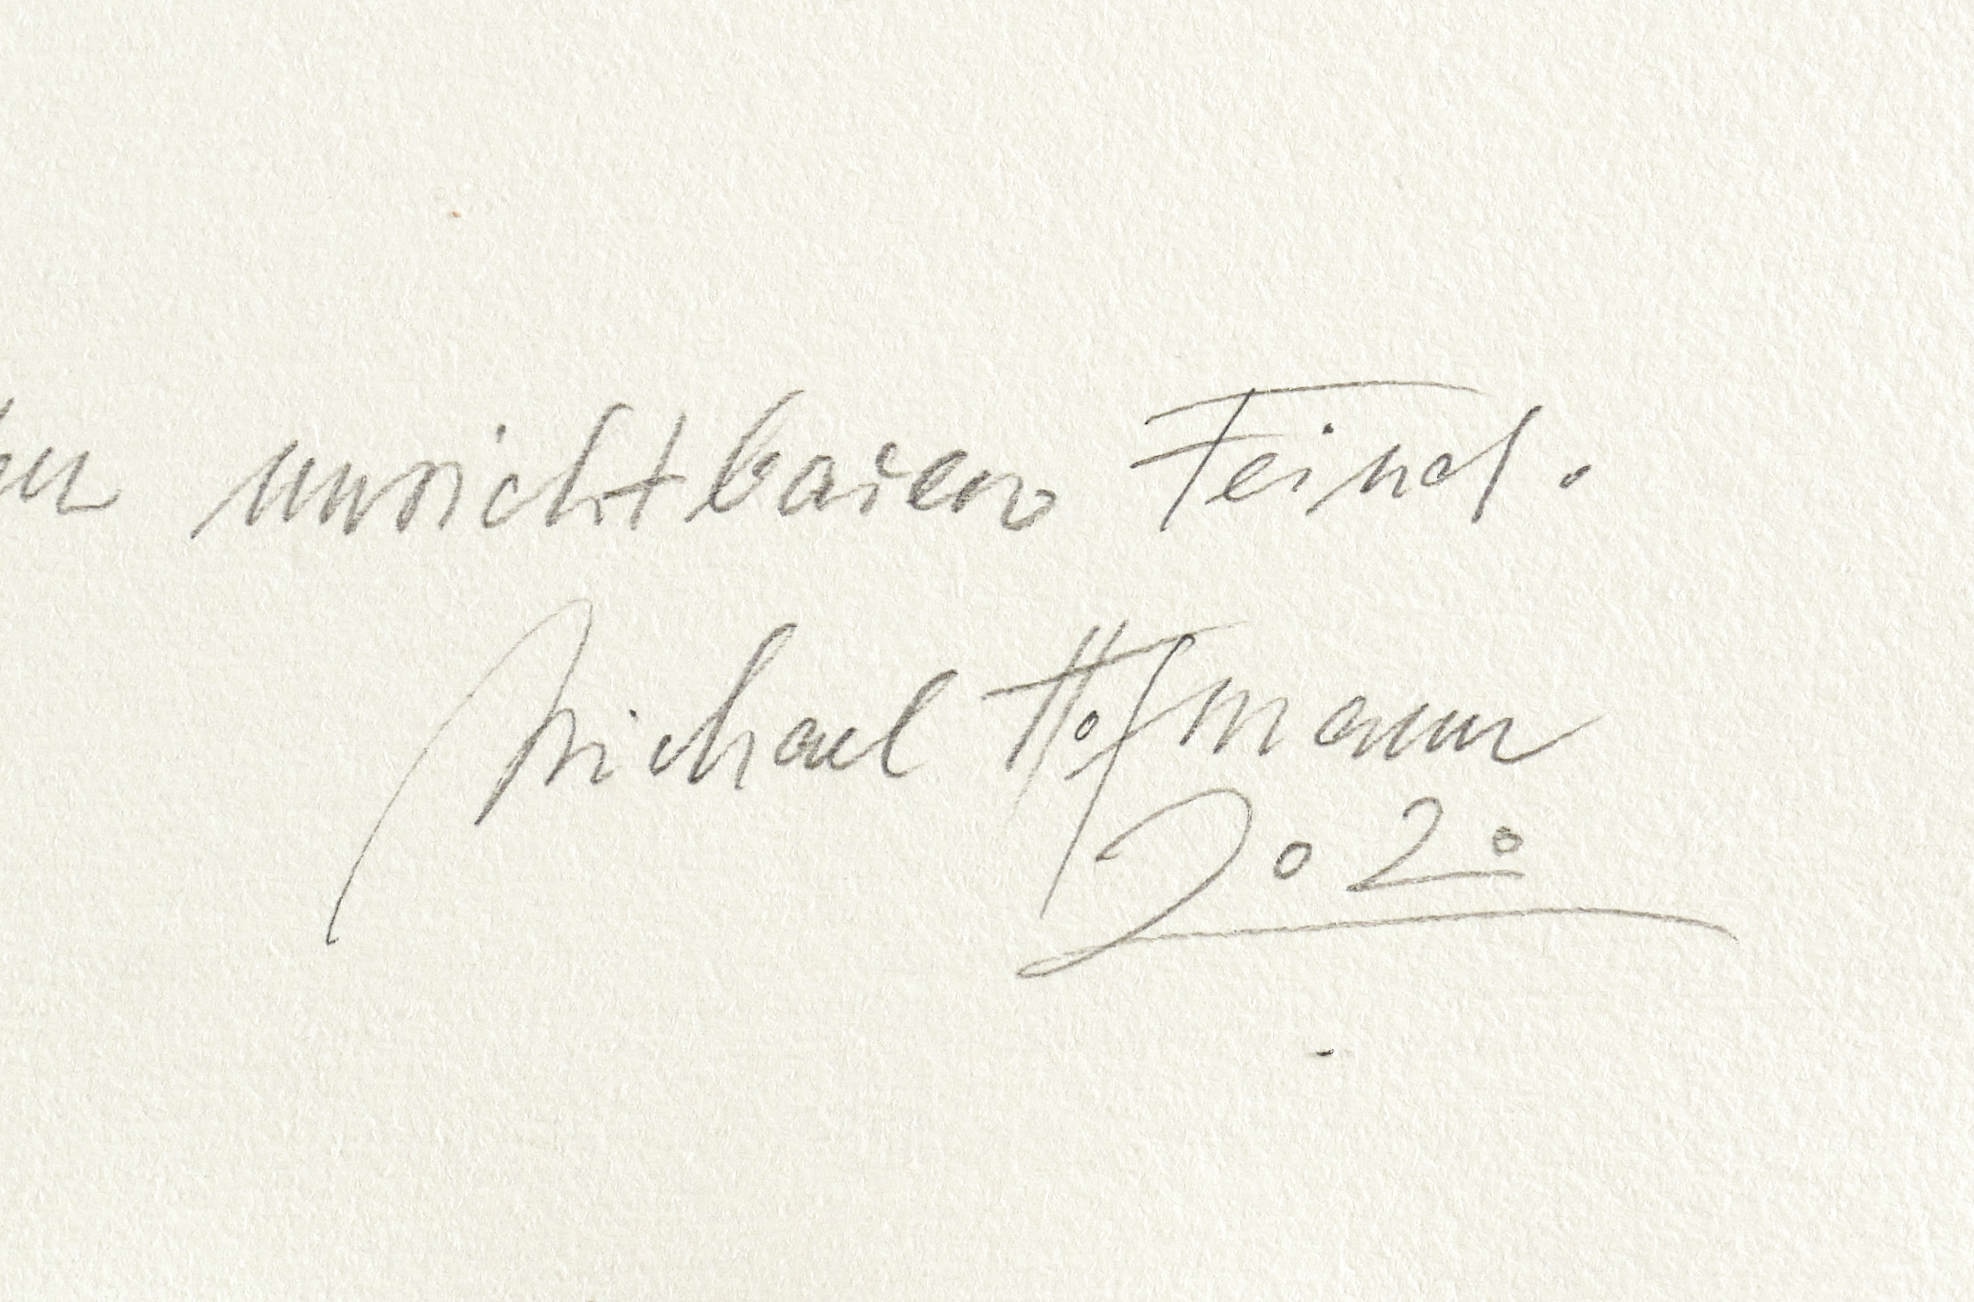 unsichtbaren Feind.
Michael Hofmann
2020